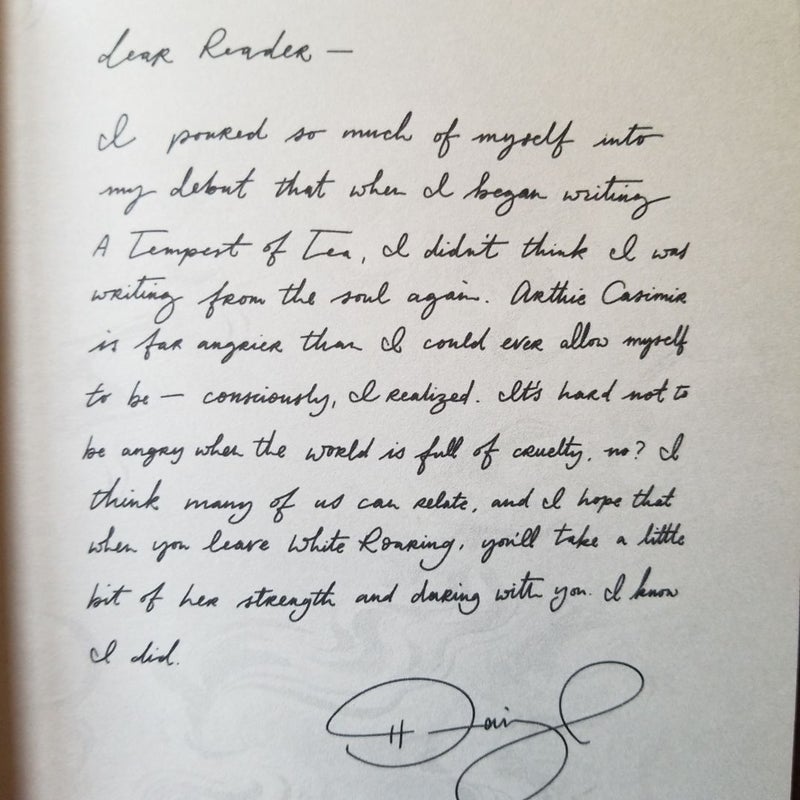 dear Reader —
I poured so much of myself into
my debut that when I began writing
A Tempest of Tea, I didn't think I was
writing from the soul again. Arthie Casimir
is far angrier than I could ever allow myself
to be — consciously, I realized. It's hard not to
be angry when the world is full of cruelty, no? I
think many of us can relate, and I hope that
when you leave White Roaring, you'll take a little
bit of her strength and daring with you. I know
I did.